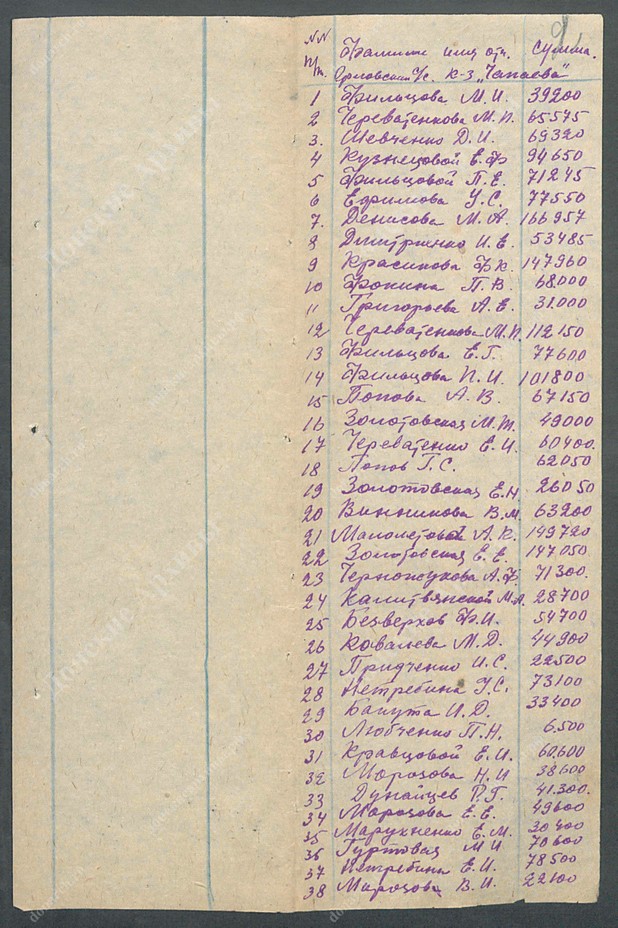 NN п/п. Фамилия имя отч. Сумма.
Орловский с/с. к-з "Чапаева"
1 Фильцова М.И. 39200
2 Череватенкова М.П. 65575
3. Шевченко Д.И. 69320
4 Кузнецовой Е.Ф 94650
5 Фильцовой П.Е. 71245
6 Ефимова У.С. 77550
7. Денисова М.А. 166957
8 Дмитриенко И.Е. 53485
9 Красикова Ф.К. 147960
10 Фокина П.В. 68.000
11 Григорьева А.Е. 31.000
12 Череватенкова М.П. 112150
13 Фильцова Е.Г. 77600
14 Фильцова П.И. 101800
15 Попова А.В. 67150
16 Золотовская М.Т. 49000
17 Череватенко Е.И. 60400.
18 Попов Г.С. 62050
19 Золотовская Е.Н. 26050
20 Винникова В.М. 63200
21 А.К. 149720
22 Золотовская Е.Е. 147050.
23 Черножукова А.Ф. 71300.
24 М.А. 28700
25 Безверхов Ф.И. 54700
26 Ковалева М.Д. 44900
27 Придченко И.С. 22500
28 Нетребина У.С. 73100
29 Бапута И.Д. 33400
30 Любченко П.Н. 6.500
31 Кравцовой Е.И. 60.600
32 Морозова Н.И 38600
33 Дунайцев Р.Г. 41.300.
34 Морозова Е.Е. 49600
35 Марухненко Е.М. 30400
36 Гуртовая М.И 70600
37 Нетребина Е.И. 78500
38 Морозова В.И. 22100